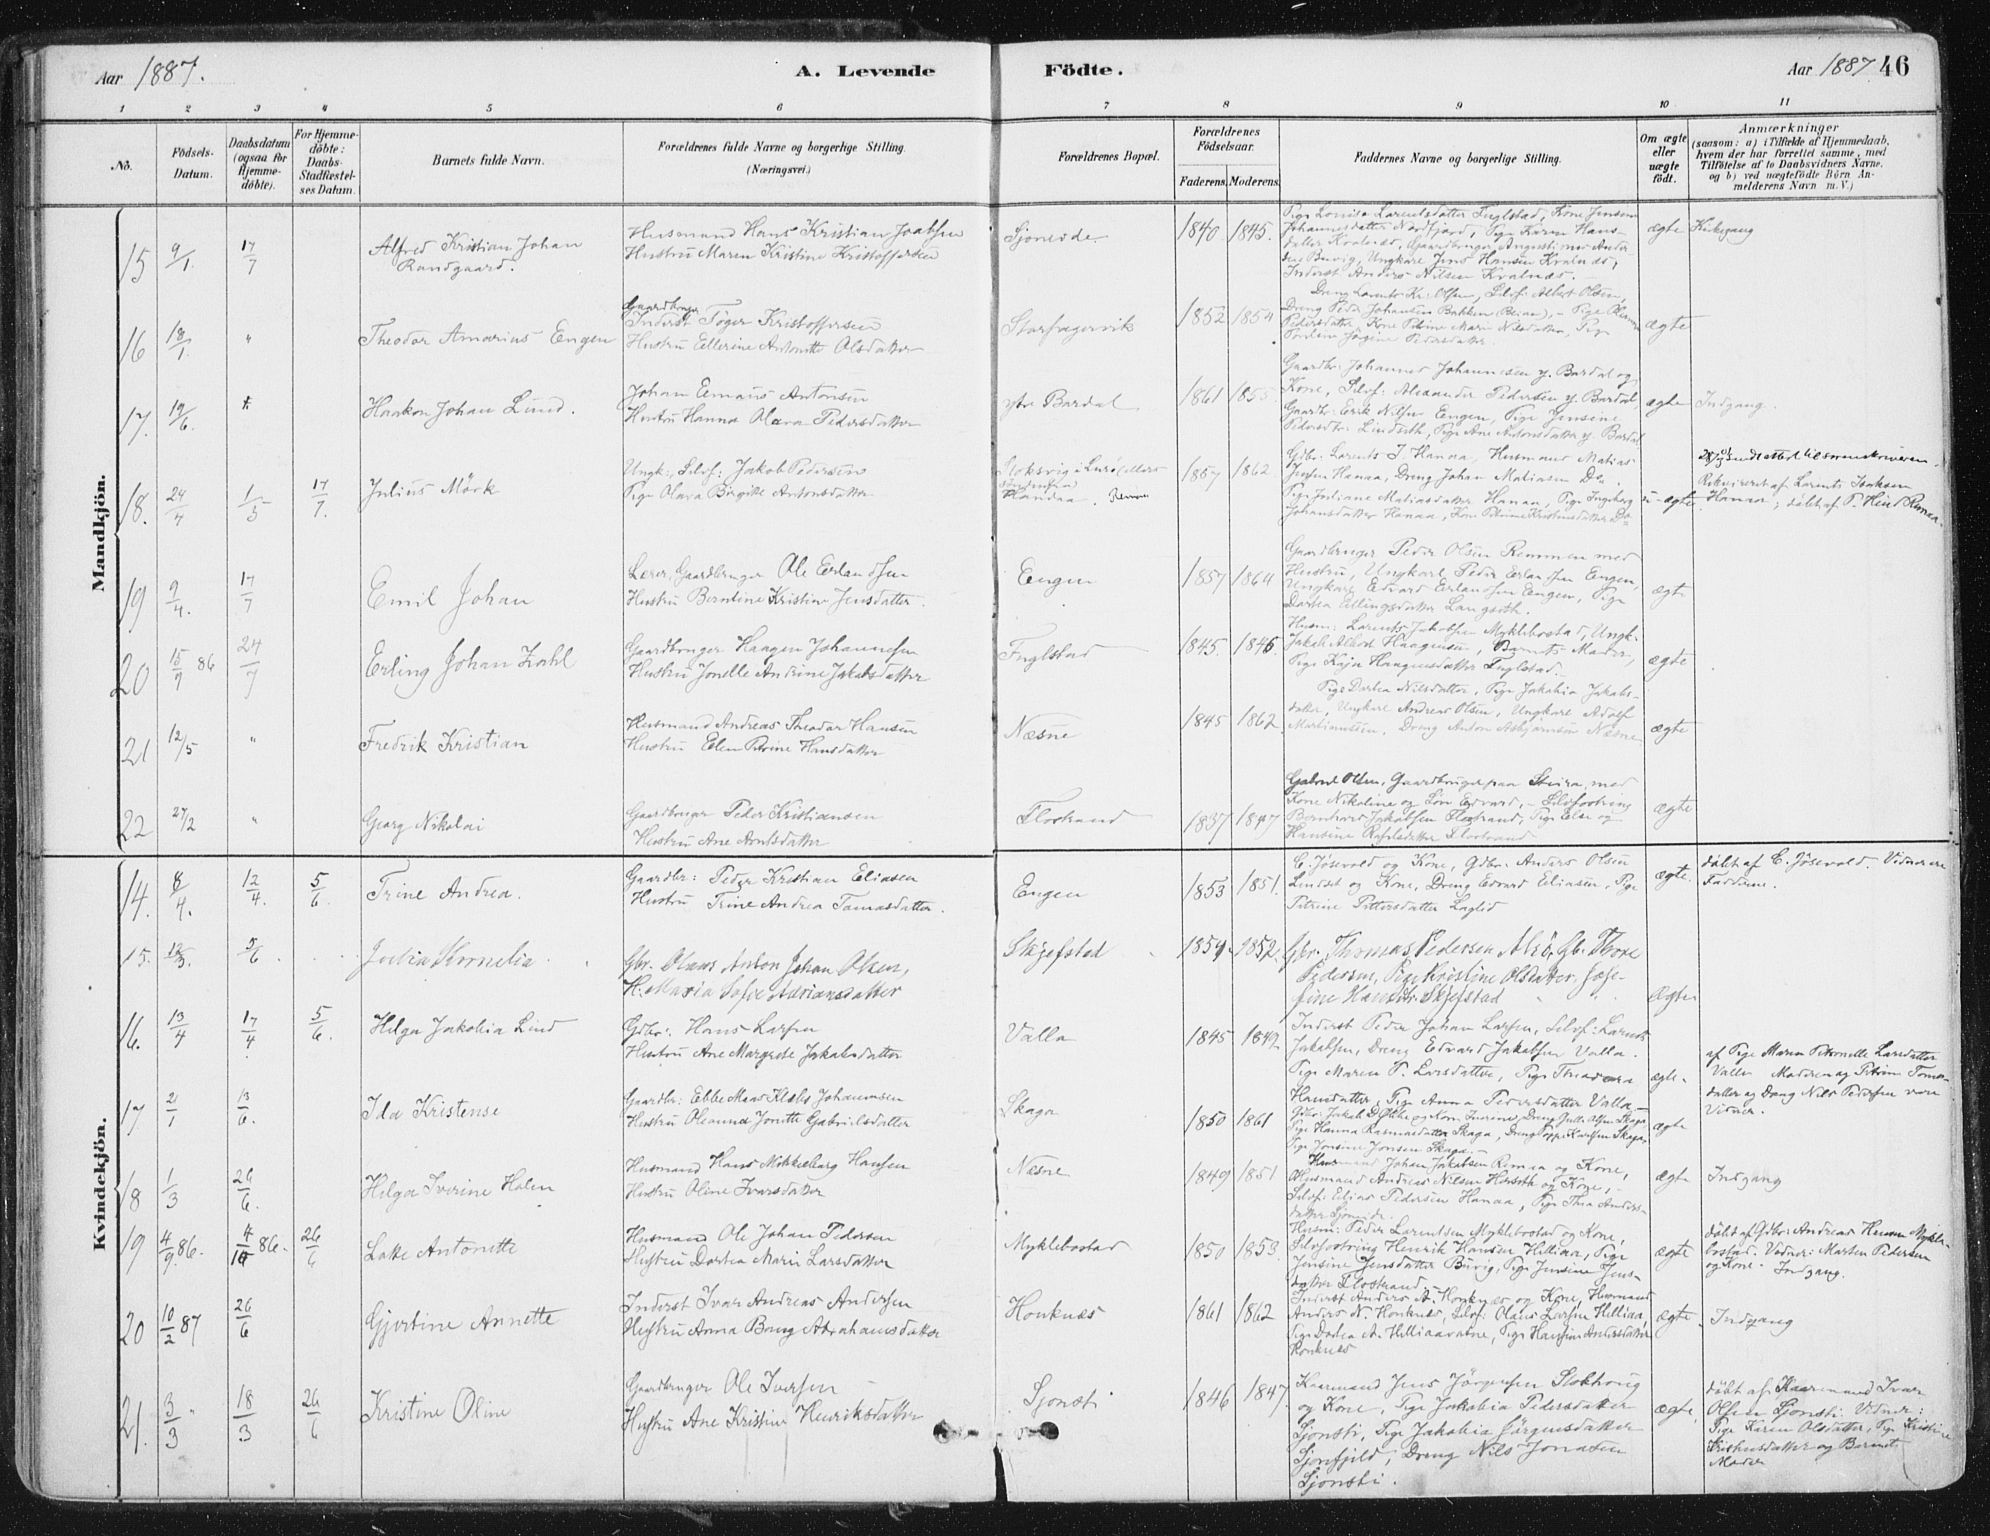 Aar 1887.
A. Levende
Födte.
Aar 1887 46
1 2 3 4 5 6 7 8 9 10 11
No.
Födsels-Datum.
Daabsdatum (ogsaa for Hjemme-döbte).
For Hjemme-döbte: Daabs-Stadfæstel-ses Datum.
Barnets fulde Navn.
Forældrenes fulde Navne og borgerlige Stilling.
(Næringsvei.)
Forældrenes Bopæl.
Forældrenes Födselsaar.
Faderens. Moderens.
Faddernes Navne og borgerlige Stilling.
Om ægte eller uægte födt.
Anmærkninger
(saasom: a) i Tilfælde af Hjemmedaab, hvem der har forrettet samme, med Tilföielse af to Daabsvidners Navne, og b) ved uægtefödte Börn Anmelderens Navn m.V.)
Mandkjön.
15 9/1. 17/7 Alfred Kristian Johan
Randgaard.
Husmand Hans Kristian Joabsen
Hustru Maren Kristine Kristoffersen
Sjoneide. 1840 1845.
Pige Lovisa Larentsdatter Fuglstad, Kone Jensine
Johannesdatter Nordfjord, Pige Karen Hans-
datter Kvalnæs, Gaardbruger Augustinus Ander
sen Buvig, Ungkarl Jens Hansen Kvalnæs,
Inderst Anders Nilsen Kvalnæs.
ægte Kirkegang
16 18/1. " Theodor Amarius Engen
Gaardbruger
Inderst Töger Kristoffersen
Hustru Ellerine Antonette Olsdatter
Storfagervik 1852 1854
Dreng Larents Kr. Olsen, Selvf. Albert Olsen,
Dreng Peder Johansen Bakken (Beian), Pige
Pedersdatter, Kone Petrine Marie Nilsdatter, Pige
Jörgine Pedersdatter.
ægte
17. 19/6. Haakon Johan Lund.
Johan Emaus Antonsen
Hustru Hanna Olava Pedersdatter
ytre Bardal 1861 1855.
Gaardbr. Johannes Johannesen y. Bardal og
Kone, Selvf. Alexander Pedersen y. Bardal,
Gaardb. Erik Nilsen Engen, Pige Jensine
Pedersdtr. Lindseth, Pige Ane Antonsdatter y. Bardal
ægte Indgang.
18. 24/4 1/5 17/7. Julius Mörk
Ungk., Selvf. Jakob Pedersen
Pige Olava Birgitte Antonsdatter
Stoksvig i Lurö
Handaa. 1857 1862
Gdbr. Larents I. Hanaa, Husmand Matias
Jensen Hanaa, Dreng Johan Matiasen Do.
Pige Juliane Matiasdatter Hanaa, Pige Ingeborg
Johansdatter Hanaa, Kone Petrine Kristensdatter Do
u-ægte
Rekvireret af Larents Isaksen
Hanaa; döbt af P. Hend Remaa.
19 9/4. 17/7 Emil Johan
Lærer, Gaardbruger Ole Erlandsen
Hustru Berntine Kristine Jensdatter.
Engen 1857 1864
Gaardbruger Peder Olsen Remmen med
Hustru, Ungkarl Peder Erlandsen Engen,
Ungkarl Edvard Erlandsen Engen, Pige
Dortea Ellingsdatter Langseth.
ægte
20 15/9 86 24/7 Erling Johan Zahl
Gaardbruger Haagen Johannesen
Hustru Jonelle Andrine Jakobsdatter
Fuglstad 1845. 1846.
Husm. Larents Jakobsen Myklebostad, Ungk.
Jakob Albert Haagensen, Barnets Moder,
Pige Kaja Haagensdatter Fuglstad.
ægte
21 12/5 " Fredrik Kristian
Husmand Andreas Theodor Hansen
Hustru Elen Petrine Hansdatter
Næsne 1845 1862
Pige Dortea Nilsdatter, Pige Jakobia Jakobs-
datter, Ungkarl Andreas Olsen, Ungkarl Adolf
Martinussen, Dreng Anton Asbjörnsen Næsne
ægte
22 27/2 " Georg Nikolai
Gaardbruger Peder Kristiansen
Hustru Ane Arntsdatter
Flostrand 1837 1847
Gabriel Olsen, Gaardbruger paa Stuira med
Kone Nikoline og Sön Edvard, – Selvfostring
Bernhard Jakobsen Flostrand, Pige Else og
Hansine Rafelsdatter Flostrand
ægte
Kvindekjön.
14. 8/4. 12/4. 5/6 Trine Andrea.
Gaardbr: Peder Kristian Eliasen
Hustru Trine Andrea Tomasdatter.
Engen 1853 1851.
C. Jösevold og Kone, Gdbr. Anders Olsen
Lindset og Kone, Dreng Edvard Eliasen, Pige
Petrine Pettersdatter Laglid
ægte.
döbt af C. Jösevold. Vidnerne
Fadderne.
15. 12/3. 5/6 Julia Kornelia
Gbr. Olaus Anton Johan Olsen,
H. Maria Sofie Adriansdatter
Skjefstad 1854 1852.
Gbr. Thomas Pedersen Alsö, Gb. Thore
Pedersen, Pige Kristine Olsdatter, Jose-
fine Hansdtr. Skjefstad
ægte
16. 13/4 17/4 5/6. Helga Jakobia Lind
Gdbr: Hans Larsen
Hustru Ane Margrete Jakobsdatter
Valla 1845 1849
Inderst Peder Johan Larsen, Selvf: Larents
Jakobsen, Dreng Edvard Jakobsen Valla.
Pige Maren P. Larsdatter, Pige Theodora
Hansdatter, Pige Anna Pedersdatter Valla
ægte.
af Pige Maren Petronelle Larsdatter
Valla Moderen og Petrine Toma-
datter og Dreng Nils Pedersen vare
Vidner.
17 2/1 13/6. Ida Kristense
Gaardbr: Ebbe Maas Klæbo Johannesen
Hustru Oleanna Jonette Gabrielsdatter
Skaga 1850 1861
Pige Hanna Rasmusdatter Skaga, Dreng Poppe Karlsen Skaga,
Pige Jonsine Jonsen Skaga.
ægte
18 1/3 26/6. Helga Iverine Holen
Husmand Hans Mikkelborg Hansen
Hustru Oline Ivarsdatter
Næsne 1849 1851
Husmand Johan Jakobsen Remaa og Kone,
Husmand Andreas Nilsen Horseth og Kone,
Selvf: Elias Pedersen Hanaa, Pige Thea Anders-
datter Sjoneide.
ægte Indgang
19 4/9 86. 4/10 86. 26/6 Lotte Antonette
Husmand Ole Johan Pedersen
Hustru Dortea Marie Larsdatter
Myklebostad 1850 1853.
Husm: Peder Larentsen Myklebostad og Kone,
Selvfostring Henrik Hansen Hilliaa, Pige
Jensine Jensdatter Buvig, Pige Jensine Jens-
datter Flostrand
ægte
döbt af Gdbr. Andreas Hansen Mykle-
bostad. Vidner: Morten Pedersen
og Kone. Indgang.
20 10/2 87 26/6 Gjertine Annette
Inderst Ivar Andreas Andersen
Hustru Anna Berg Abrahamsdatter
Honknæs 1861 1862
Inderst Anders A. Honknæs og Kone, Husmand
Anders N. Honknæs, Selvf. Olaus Larsen Hilliaa,
Pige Dortea A. Hilliaavatne, Pige Hansine Andersdatter
Honknæs
ægte. Indgang
21. 3/3 18/3 26/6 Kristine Oline
Gaardbruger Ole Iversen
Hustru Ane Kristine Henriksdatter
Sjonsti 1846 1847.
Kaarmand Jens Jörgensen Stokkrog
og Kone, Pige Jakobia Pedersdatter
Sjonsti, Pige Jakobia Jörgensdatter
Sjonfjeld, Dreng Nils Jonasen
Sjonsti.
ægte.
döbt af Kaarmand Ivar
Olsen Sjonsti. Vidner:
Pige Karen Olsdatter, Pige Kristine
Kristensdatter og Barnets
Moder